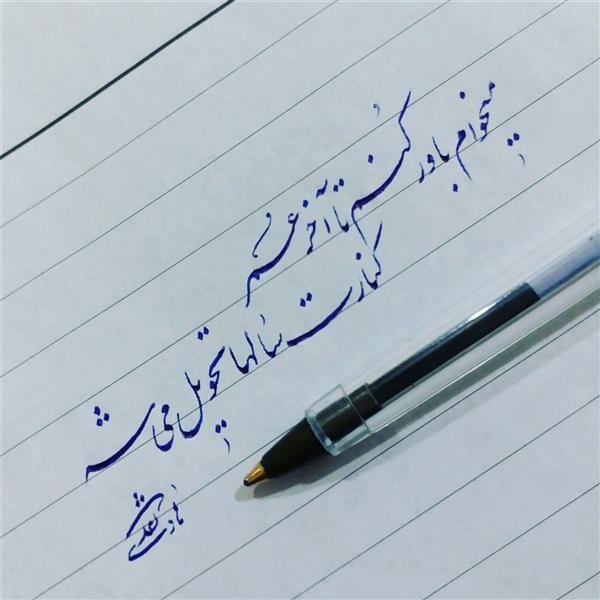 میخوام باور کنم تا آخر عمر
کنارت سالها تحویل می شه